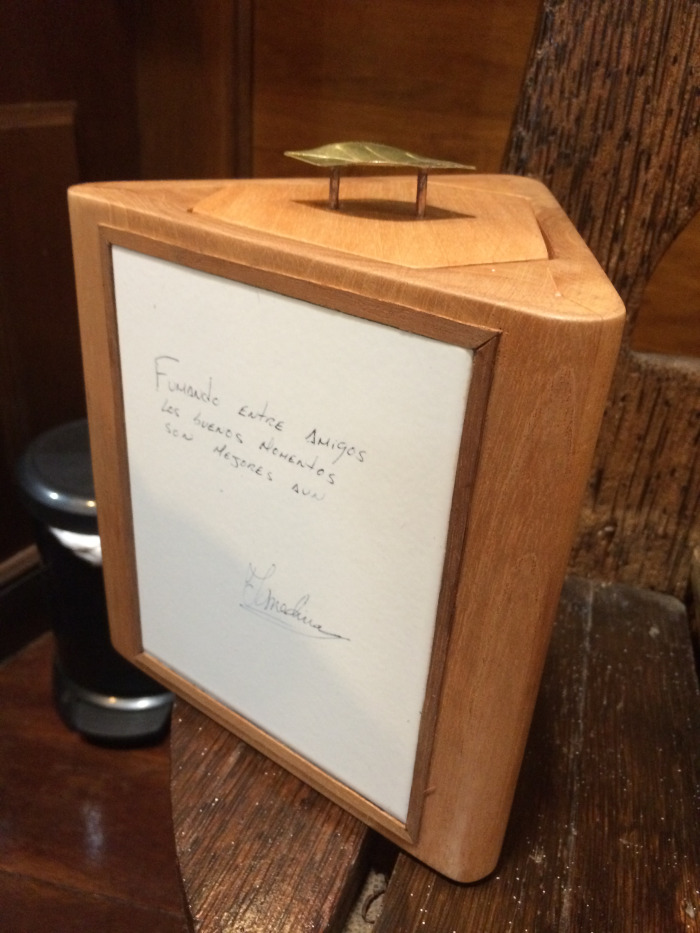 Fumando entre amigos
los buenos momentos
son mejores aun